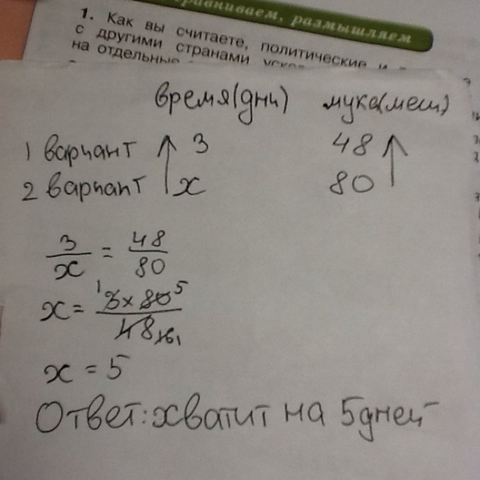 равниваем, размышляем
1. Как вы считаете, политические и
с другими странами
на отдельные
время(дни) мука(меш)
1 вариант 3 48
2 вариант x 80
3/x = 48/80
x = 3 x 80 5 / 48 16 1
x = 5
Ответ: хватит на 5 дней